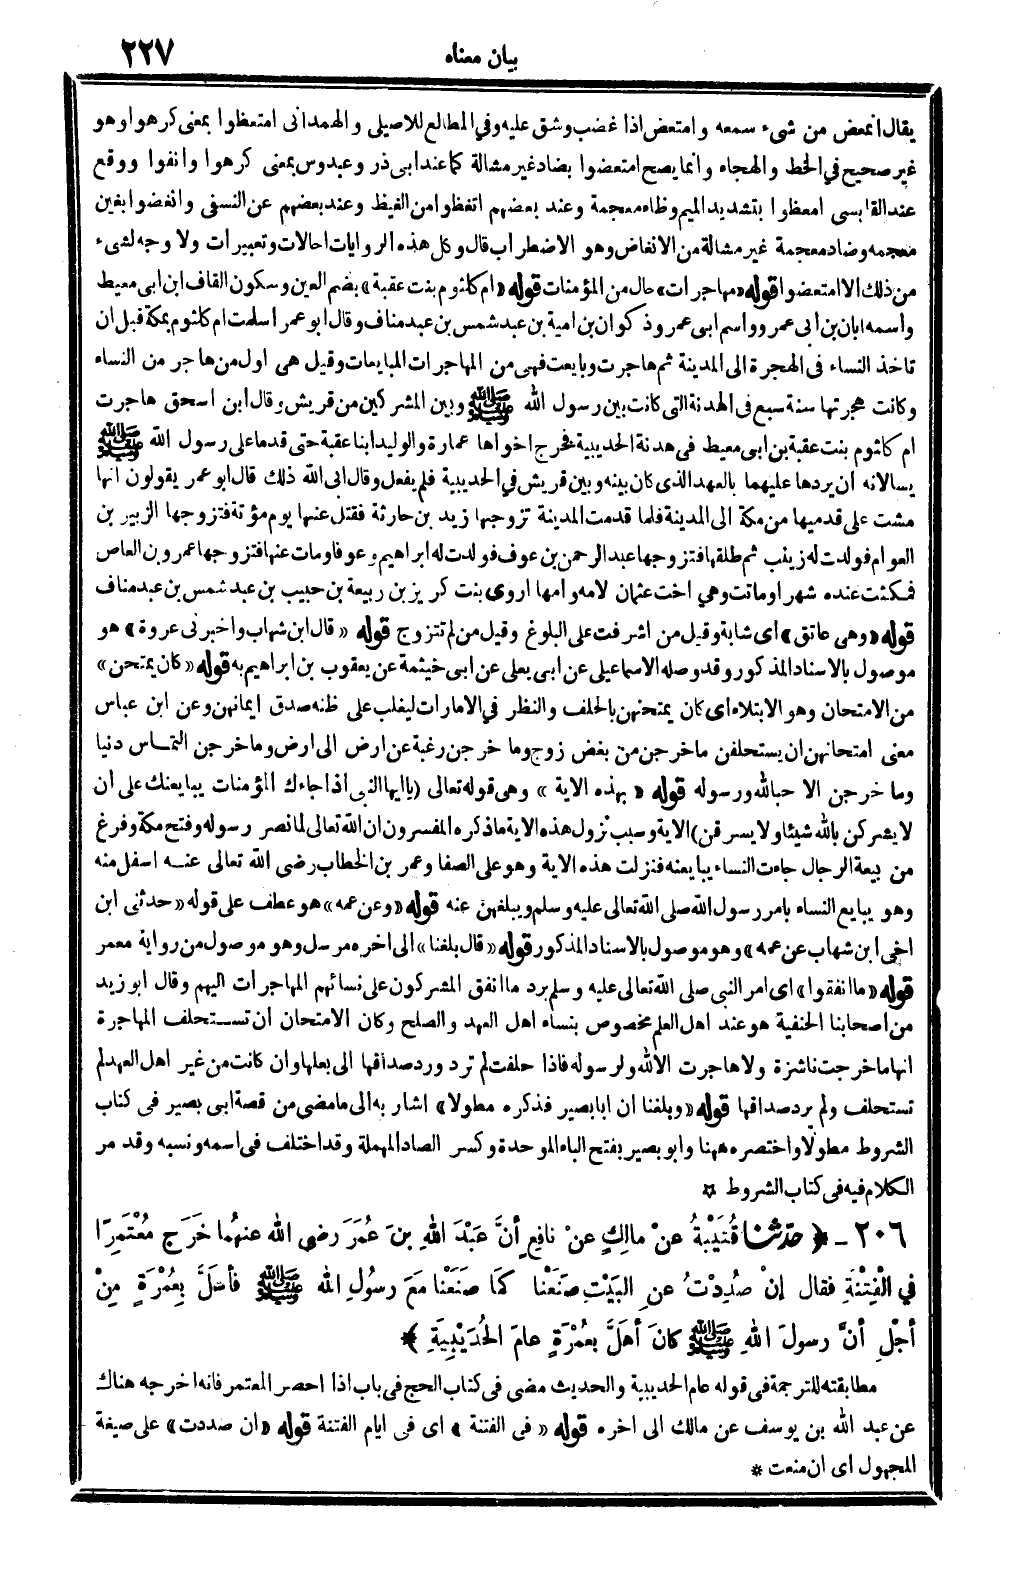 بيان معناه
٢٢٧
يقال امعض من شىء سمعه وامتعض اذا غضب وشق عليه وفي المطالع للاصيلى والهمدانى امتعظوا بمعنى كرهوا وهو
غير صحيح في الخط والهجاء وانما يصح امتعضوا بضاد غير مشالة كما عند ابى ذر وعبدوس بمعنى كرهوا وانفوا ووقع
عند القابسى امعظوا بتشديد الميم وظاء معجمة وعند بعضهم اتغظوا من الغيظ وعند بعضهم عن النسفى وانغضوا بغين
معجمه وضاد معجمة غير مشالة من الانغاض وهو الاضطراب قال وكل هذه الروايات احالات وتعبيرات ولا وجه لشىء
من ذلك الا امتعضوا قوله «مهاجرات» حال من المؤمنات قوله «ام كلثوم بنت عقبة» بضم العين وسكون القاف ابن ابى معيط
واسمه ابان بن ابى عمرو واسم ابى عمرو ذكوان بن امية بن عبد شمس بن عبد مناف وقال ابو عمر اسلمت ام كلثوم بمكة قبل ان
تاخذ النساء فى الهجرة الى المدينة ثم هاجرت وبايعت فهى من المهاجرات المبايعات وقيل هى اول من هاجر من النساء
وكانت هجرتها سنة سبع فى الهدنة التى كانت بين رسول الله ﷺ وبين المشركين من قريش وقال ابن اسحق هاجرت
ام كلثوم بنت عقبة بن ابى معيط فى هدنة الحديبية فخرج اخواها عمارة والوليد ابنا عقبة حتى قدما على رسول الله ﷺ
يسالانه ان يردها عليهما بالعهد الذى كان بينه وبين قريش في الحديبية فلم يفعل وقال ابى الله ذلك قال ابو عمر يقولون انها
مشت على قدميها من مكة الى المدينة فلما قدمت المدينة تزوجها زيد بن حارثة فقتل عنها يوم مؤتة فتزوجها الزبير بن
العوام فولدت له زينب ثم طلقها فتزوجها عبد الرحمن بن عوف فولدت له ابراهيم وعوفا ومات عنها فتزوجها عمرو بن العاص
فمكثت عنده شهرا وماتت وهي اخت عثمان لامه وامها اروى بنت كريز بن ربيعة بن حبيب بن عبد شمس بن عبد مناف
قوله «وهى عاتق» أى شابة وقيل من اشرفت على البلوغ وقيل من لم تتزوج قوله «قال ابن شهاب واخبرنى عروة» هو
موصول بالاسناد المذكور وقد وصله الاسماعيلى عن ابى يعلى عن ابى خيثمة عن يعقوب بن ابراهيم به قوله «كان يمتحن»
من الامتحان وهو الابتلاء اى كان يمتحنهن بالحلف والنظر في الامارات ليغلب على ظنه صدق ايمانهن وعن ابن عباس
معنى امتحانهن ان يستحلفن ما خرجن من بغض زوج وما خرجن رغبة عن ارض الى ارض وما خرجن التماس دنيا
وما خرجن الا حبا لله ورسوله قوله «بهذه الاية» وهى قوله تعالى (يا ايها النبى اذا جاءك المؤمنات يبايعنك على أن
لا يشركن بالله شيئا ولا يسرقن) الاية وسبب نزول هذه الاية ما ذكره المفسرون ان الله تعالى لما نصر رسوله وفتح مكة وفرغ
من بيعة الرجال جاءت النساء يبايعنه فنزلت هذه الاية وهو على الصفا وعمر بن الخطاب رضى الله تعالى عنه اسفل منه
وهو يبايع النساء بامر رسول الله صلى الله تعالى عليه وسلم ويبلغهن عنه قوله «وعن عمه» هو عطف على قوله «حدثنى ابن
اخى ابن شهاب عن عمه» وهو موصول بالاسناد المذكور قوله «قال بلغنا» الى اخره مرسل وهو موصول من رواية معمر
قوله «ما انفقوا» اى امر النبى صلى الله تعالى عليه وسلم برد ما انفق المشركون على نسائهم المهاجرات اليهم وقال ابو زيد
من اصحابنا الحنفية هو عند اهل العلم مخصوص بنساء اهل العهد والصلح وكان الامتحان ان تستحلف المهاجرة
انها ما خرجت ناشزة ولا هاجرت الا لله ولرسوله فاذا حلفت لم ترد ورد صداقها الى بعلها وان كانت من غير اهل العهد لم
تستحلف ولم يرد صداقها قوله «وبلغنا ان ابا بصير فذكره مطولا» اشار به الى ما مضى من قصة ابى بصير فى كتاب
الشروط مطولا واختصره ههنا وابو بصير بفتح الباء الموحدة وكسر الصاد المهملة وقد اختلف فى اسمه ونسبه وقد مر
الكلام فيه فى كتاب الشروط ✡
٢٠٦ ـ ﴿ حدّثنا قُتَيْبَةُ عنْ مالِكٍ عنْ نافِعٍ أنَّ عَبْدَ اللهِ بنَ عُمَرَ رضي الله عنهُما خَرَجَ مُعْتَمِرًا
في الْفِتْنَةِ فقال إنْ صُدِدْتُ عنِ البَيْتِ صَنَعْنا كَمَا صَنَعْنا مَعَ رسُولِ اللهِ ﷺ فأهَلَّ بِعُمْرَةٍ مِنْ
أجْلِ أنَّ رسولَ اللهِ ﷺ كانَ أهَلَّ بعُمْرَةٍ عامَ الحُدَيْبِيَةِ ﴾
مطابقته للترجمة فى قوله عام الحديبية والحديث مضى فى كتاب الحج فى باب اذا احصر المعتمر فانه اخرجه هناك
عن عبد الله بن يوسف عن مالك الى اخره قوله «فى الفتنة» اى فى ايام الفتنة قوله «ان صددت» على صيغة
المجهول اى ان منعت *